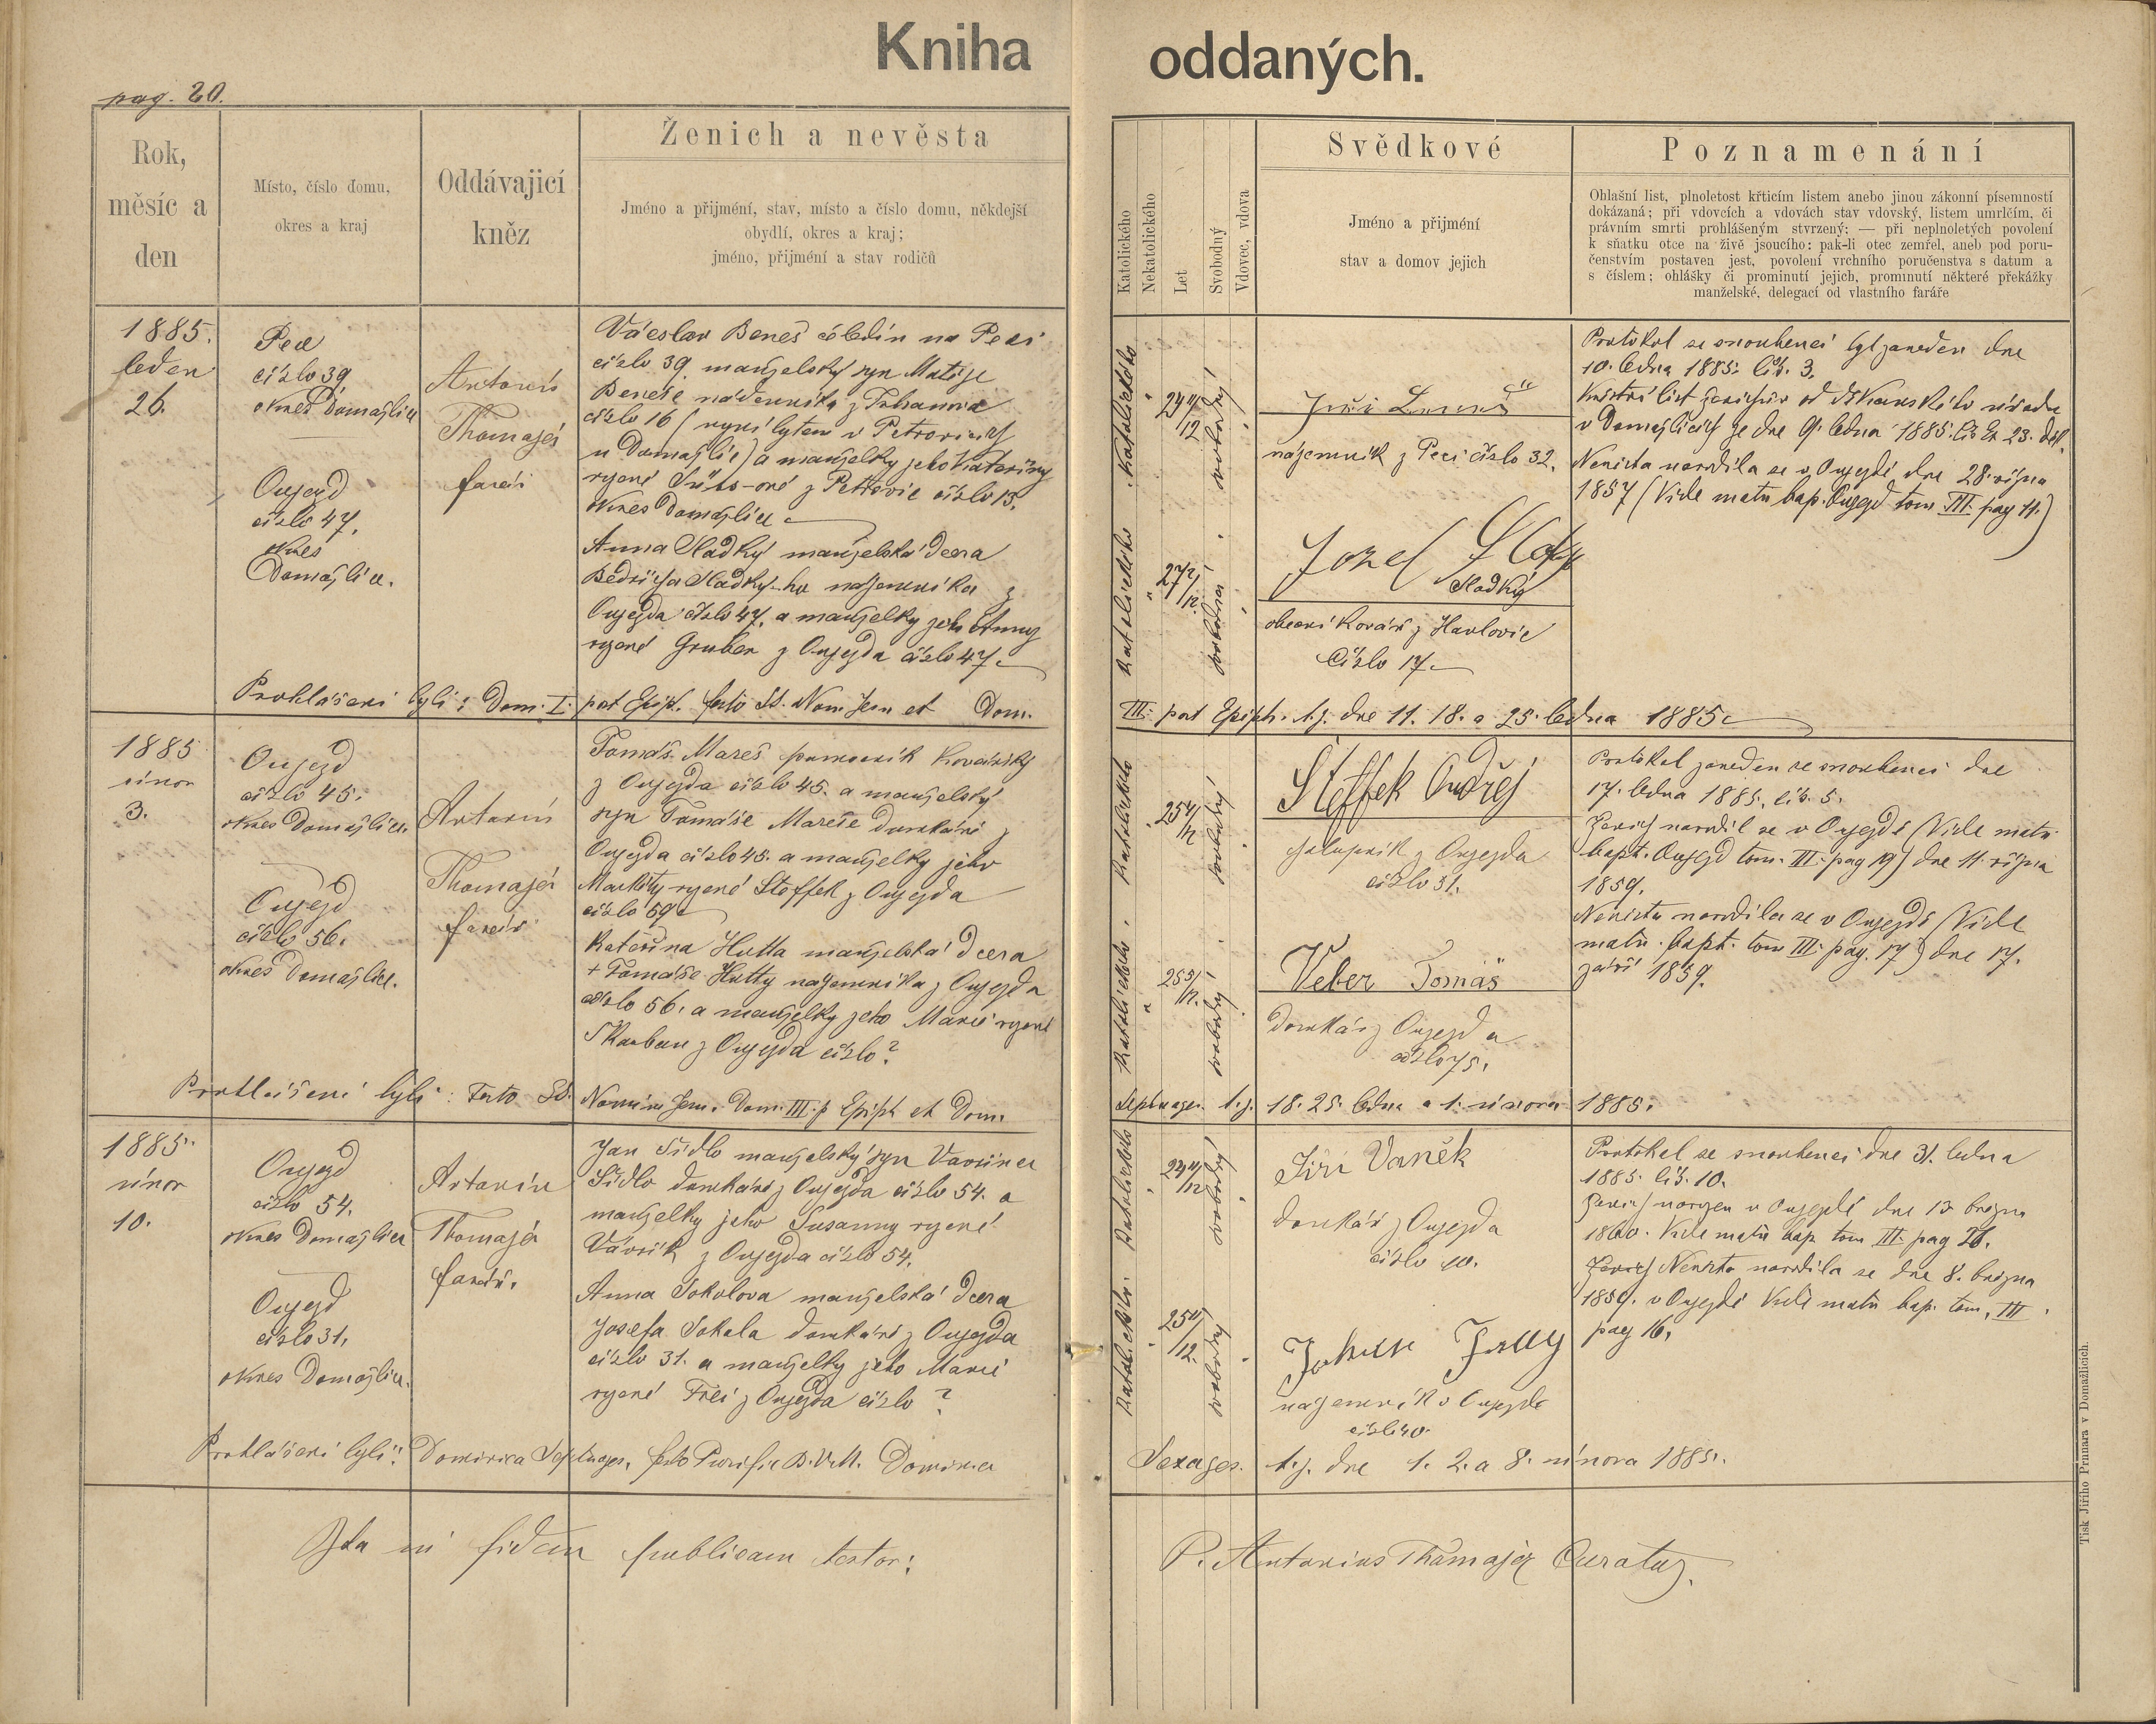 Kniha oddaných.
pag. 20.
Rok,
měsíc a
den
Místo, číslo domu,
okres a kraj
Oddávajicí
kněz
Ženich a nevěsta
Jméno a přijmění, stav, místo a číslo domu, někdejší
obydlí, okres a kraj;
jméno, přijmění a stav rodičů
Katolického
Nekatolického
Let
Svobodný
Vdovec, vdova
Svědkové
Jméno a přijmění
stav a domov jejich
Poznamenání
Ohlašní list, plnoletost křticím listem anebo jinou zákonní písemností
dokázaná; při vdovcích a vdovách stav vdovský, listem umrlčím, či
právním smrti prohlášeným stvrzený; — při neplnoletých povolení
k sňatku otce na živě jsoucího: pak-li otec zemřel, aneb pod poru-
čenstvím postaven jest, povolení vrchního poručenstva s datum a
s číslem; ohlášky či prominutí jejich, prominutí některé překážky
manželské, delegací od vlastního faráře
1885.
leden
26.
Pec
číslo 39
okres Domažlice
Oujezd
číslo 47.
okres
Domažlice.
Antonín
Thomajer
farář
Václav Beneš čeledín na Peci
číslo 39. manželský syn Matěje
Beneše nádenníka z Trhanova
číslo 16 (nyní bytem v Petrovicích
u Domažlic) a manželky jeho Kateřiny
rozené z Petrovic číslo 13.
okres Domažlice
Anna Sladký manželská dcera
Bedřicha Sladky-ho nájemníka z
Oujezda číslo 47. a manželky jeho Anny
rozené Gruber z Oujezda číslo 47.
Katolického
24 4/12
svobodný
Katolického
27 2/12
svobodná
Jiří
nájemník z Peci číslo 32.
Jozef
Sladký
obecní kovář z Havlovic
Číslo 17.
Protokol se snoubenci byl zaveden dne
10. ledna 1885. čís. 3.
Křestní list ženichův od děkanského úřadu
v Domažlicích ze dne 9. ledna 1885. čís. Ex 23. děk.
Nevěsta narodila se v Oujezdě dne 28. října
1857 (Vide matr. bap. Oujezd tom III. pag 11.)
Prohlášeni byli: Dom. I. post Epiph. festo SS. Nom Jesu et Dom.
III. post Epiph. t.j. dne 11. 18. a 25. ledna 1885.
1885
únor
3.
Oujezd
číslo 45.
okres Domažlice.
Oujezd
číslo 56.
okres Domažlice.
Antonín
Thomajer
farář
Tomáš Mareš pomocník kovářský
z Oujezda číslo 45. a manželský
syn Tomáše Mareše domkáře z
Oujezda číslo 45. a manželky jeho
Markéty rozené Steffek z Oujezda
číslo 59
Kateřina Hutta manželská dcera
+ Tomáše Hutty nájemníka z Oujezda
číslo 56. a manželky jeho Marie rozené
Skarban z Oujezda číslo?
Katolického
25 4/12
svobodný
Katolického
25 5/12.
svobodný
Steffek Ondřej
chalupník z Oujezda
číslo 51.
Veber Tomáš
domkář z Oujezda
číslo 75.
Protokol zaveden se snoubenci dne
17. ledna 1885. čís. 5.
Ženich narodil se v Oujezdě (Vide matr.
bapt. Oujezd tom. III. pag 19) dne 11. října
1859.
Nevěsta narodila se v Oujezdě (Vide
matr. bapt. tom III. pag. 17) dne 17.
září 1859.
Prohlášeni byli: Festo SS. Nomin Jesu. Dom. III. p Epiph et Dom.
Septuages. t.j. 18. 25. ledna a 1. února 1885.
1885.
únor
10.
Oujezd
číslo 54.
okres Domažlice
Oujezd
číslo 31.
okres Domažlice.
Antonín
Thomajer
farář.
Jan Sidlo manželský syn Vavřince
Sidlo domkáře z Oujezda číslo 54. a
manželky jeho Susanny rozené
Vávrík z Oujezda číslo 54.
Anna Sokolova manželská dcera
Josefa Sokola domkáře z Oujezda
číslo 31. a manželky jeho Marie
rozené Frei z Oujezda číslo ?
Katolického
24 4/12
svobodný
25 4/12.
svobodný
Jiří Vaněk
domkář z Oujezda
číslo 10.
nájemník v Oujezdě
číslo 40.
Protokol se snoubenci dne 31. ledna
1885. čís. 10.
Ženich narozen v Oujezdě dne 13 března
1860. Vide matr. bap. tom III. pag 21.
Ženich Nevěsta narodila se dne 8. března
1859. v Oujezdě Vide matr. bap. tom. III.
pag 16.
Prohlášeni byli: Dominica Septuages. festo Purific B.V.M. Dominica
Sexages. t.j. dne 1. 2. a 8. února 1885.
Ita in fidem publicam testor:
P. Antonius Thamajer Curatus.
Tisk Jiřího Prunara v Domažlicích.